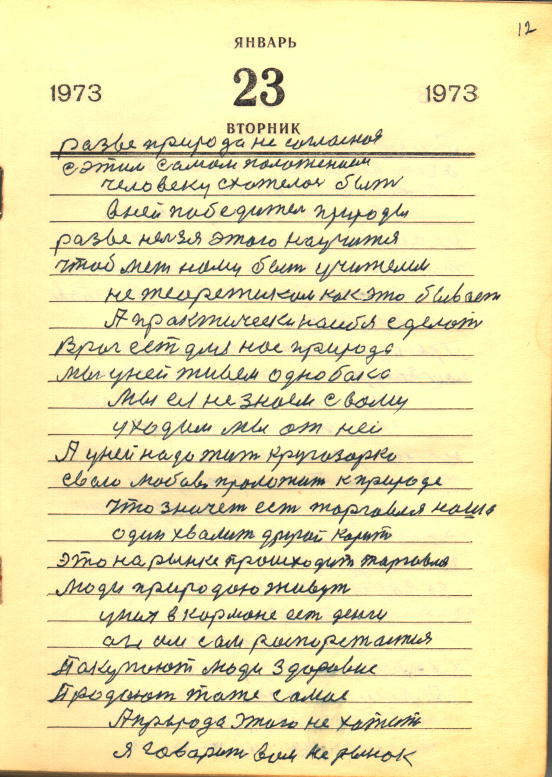 12
ЯНВАРЬ
1973 23 1973
ВТОРНИК
разве природа не согласноя
с этим самом положением
человеку схотелос быт
в ней победител природы
разве нелзя этого научится
чтоб мет наму быт учителим
не теоретиком как это бывает
А практически на себя сделот
Враг ест для нас природа
мы у ней живем однобако
Мы ея не знаем с вому
уходим мы от ней
А у ней надо жит кругозорко
сваю любов проложит к природе
что значет ест торговля наша
один хвалит другой корит
это на рынке прошходит торговля
люди природаю живут
у них в кармоне ест денги
он им сам роспорежается
Пакупают люди здоровие
Продают тоже самое
А природа этого не хотит
я говарит вам не рынок